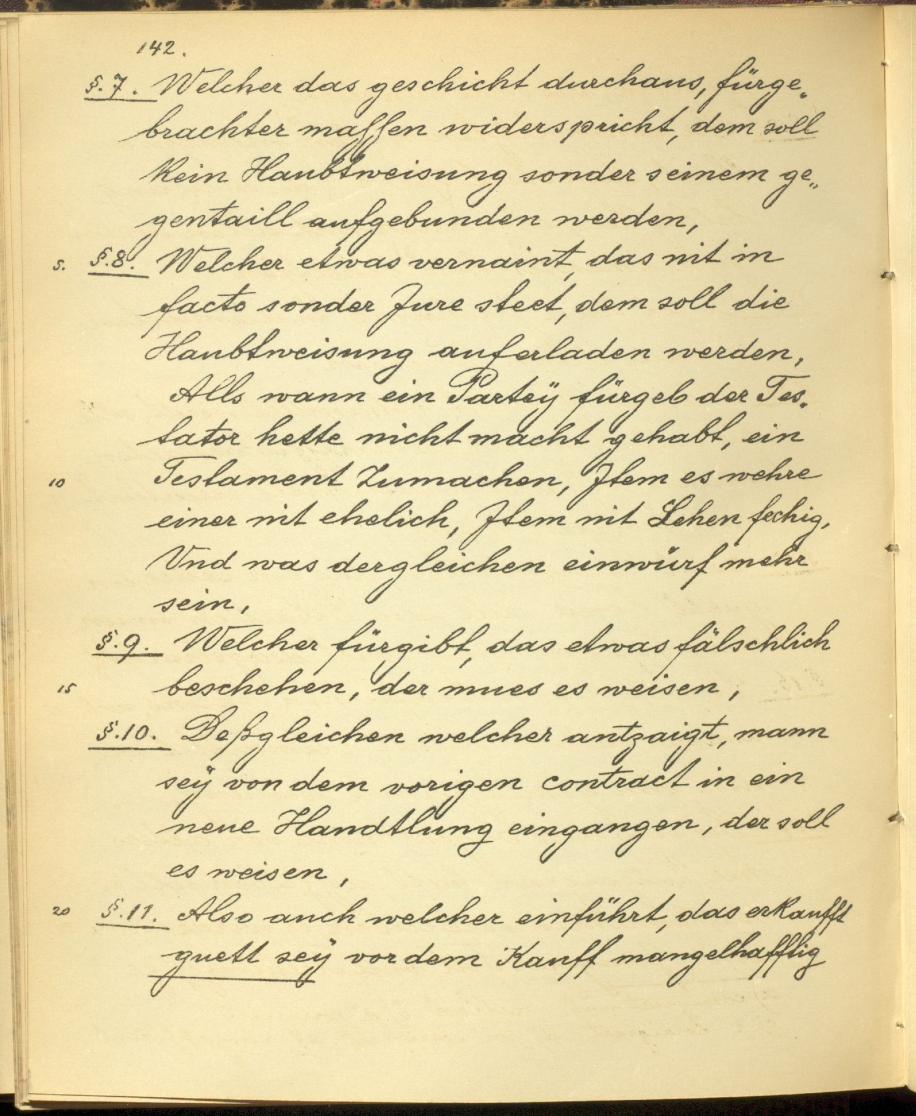 142.
§.7. Welcher das geschicht durchaus, fürge„
brachter massen widerspricht, dem soll
kein Haubtweisung sonder seinem ge„
gentaill aufgebunden werden,
5. §.8. Welcher etwas vernaint, das nit in
facto sonder Jure steet, dem soll die
Haubtweisung auferladen werden,
Alls wann ein Parteÿ fürgeb der Tes„
tator hette nicht macht gehabt, ein
10 Testament Zumachen, Jtem es wehre
einer nit ehelich, Jtem nit Lehen fechig,
Vnd was dergleichen einwürf mehr
sein,
§.9. Welcher fürgibt, das etwas fälschlich
15 beschehen, der mues es weisen,
§.10. Deßgleichen welcher antzaigt, mann
seÿ von dem vorigen contract in ein
neue Handtlung eingangen, der soll
es weisen,
20 §.11. Also auch welcher einführt, das erkaufft
guett seÿ vor dem Kauff mangelhafftig